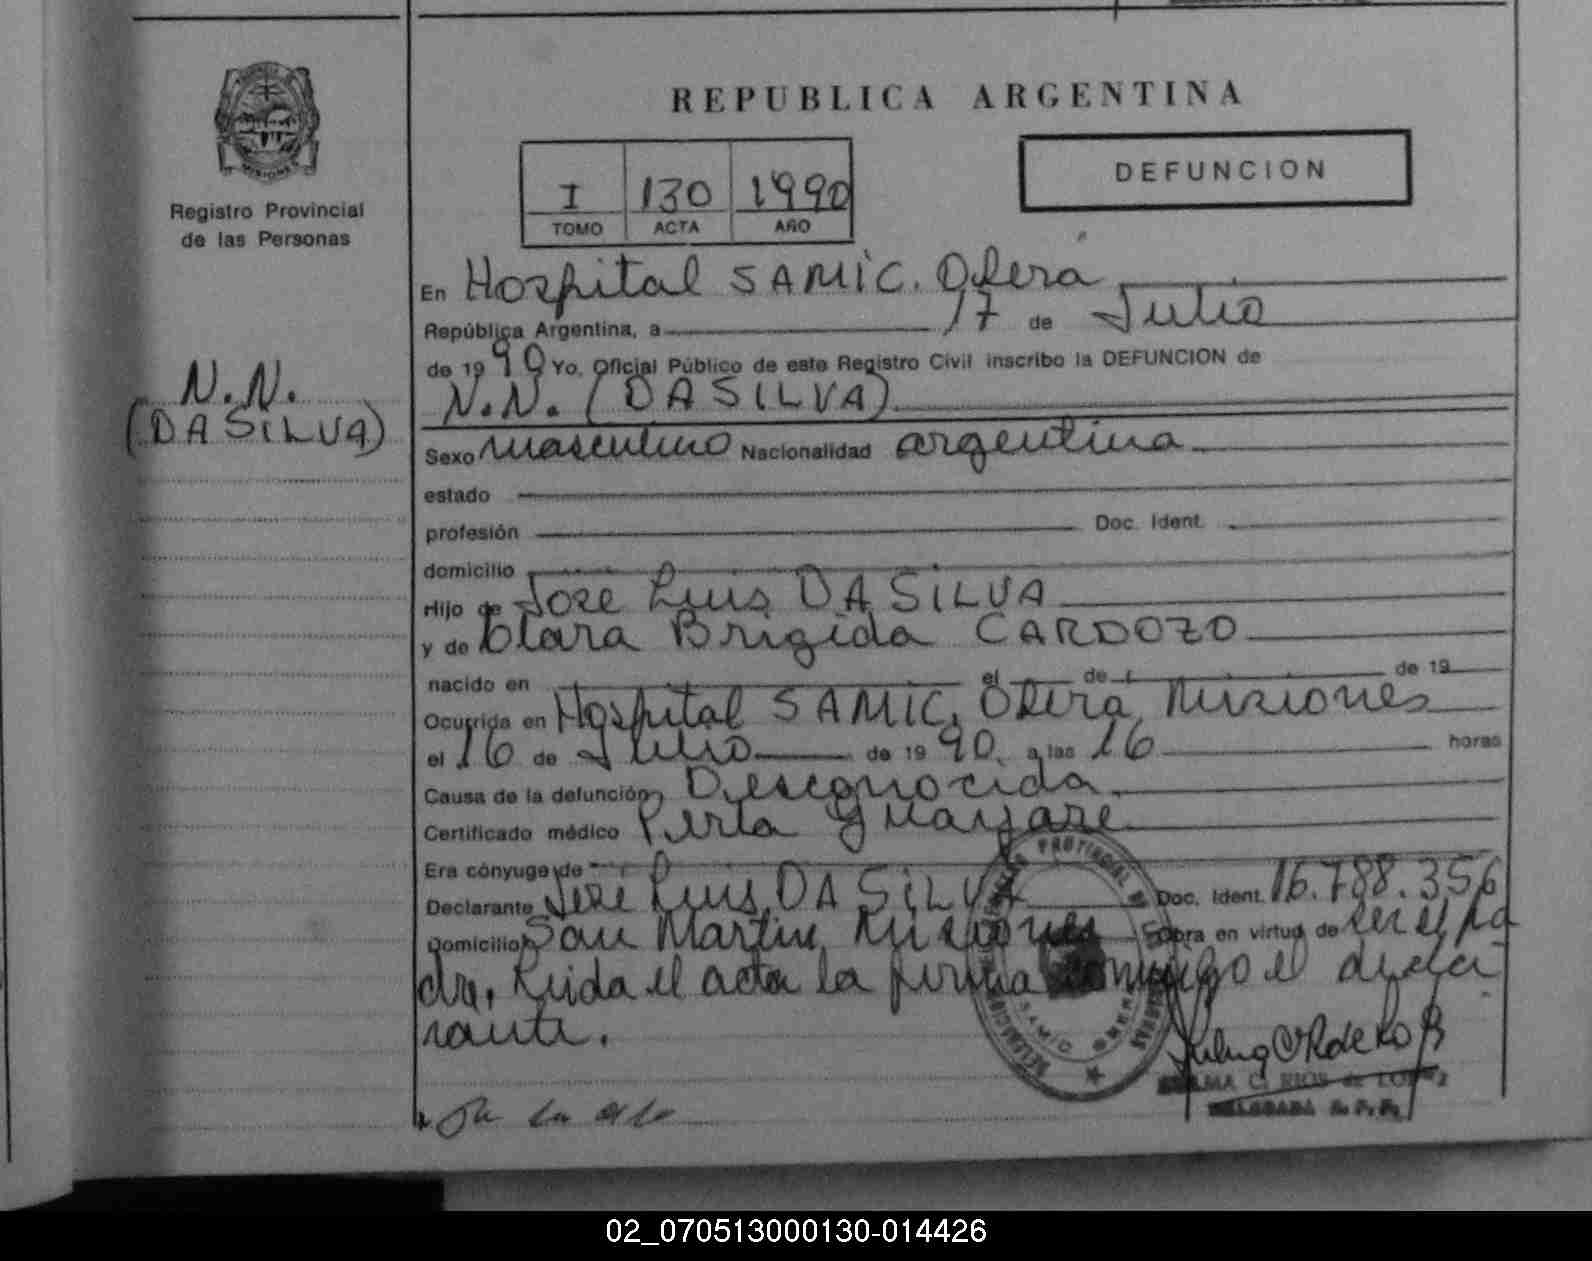 REPUBLICA ARGENTINA
DEFUNCION
I 130 1990
TOMO ACTA AÑO
MISIONES
Registro Provincial
de las Personas
N.N.
(DA SILVA)
En Hospital SAMIC. Oberá
República Argentina, a 17 de Julio
de 1990 Yo, Oficial Público de este Registro Civil inscribo la DEFUNCION de
N.N. (DA SILVA)
Sexo masculino Nacionalidad argentina
estado
profesión Doc. Ident.
domicilio
Hijo de Jose Luis DA SILVA
y de Clara Brigida CARDOZO
nacido en el de de 19
Ocurrida en Hospital SAMIC, Oberá, Misiones
el 16 de Julio de 1990 a las 16 horas
Causa de la defunción Desconocida
Certificado médico Perla
Era cónyuge de
Declarante Jose Luis DA SILVA Doc. Ident. 16.788.356
Domicilio San Martin, Misiones Obra en virtud de ser el pa
dre. Leida el acta la firma conmigo el decla
rante.
SAMIC
C. RIOS de
DELEGADA R. P. P.
02_070513000130-014426